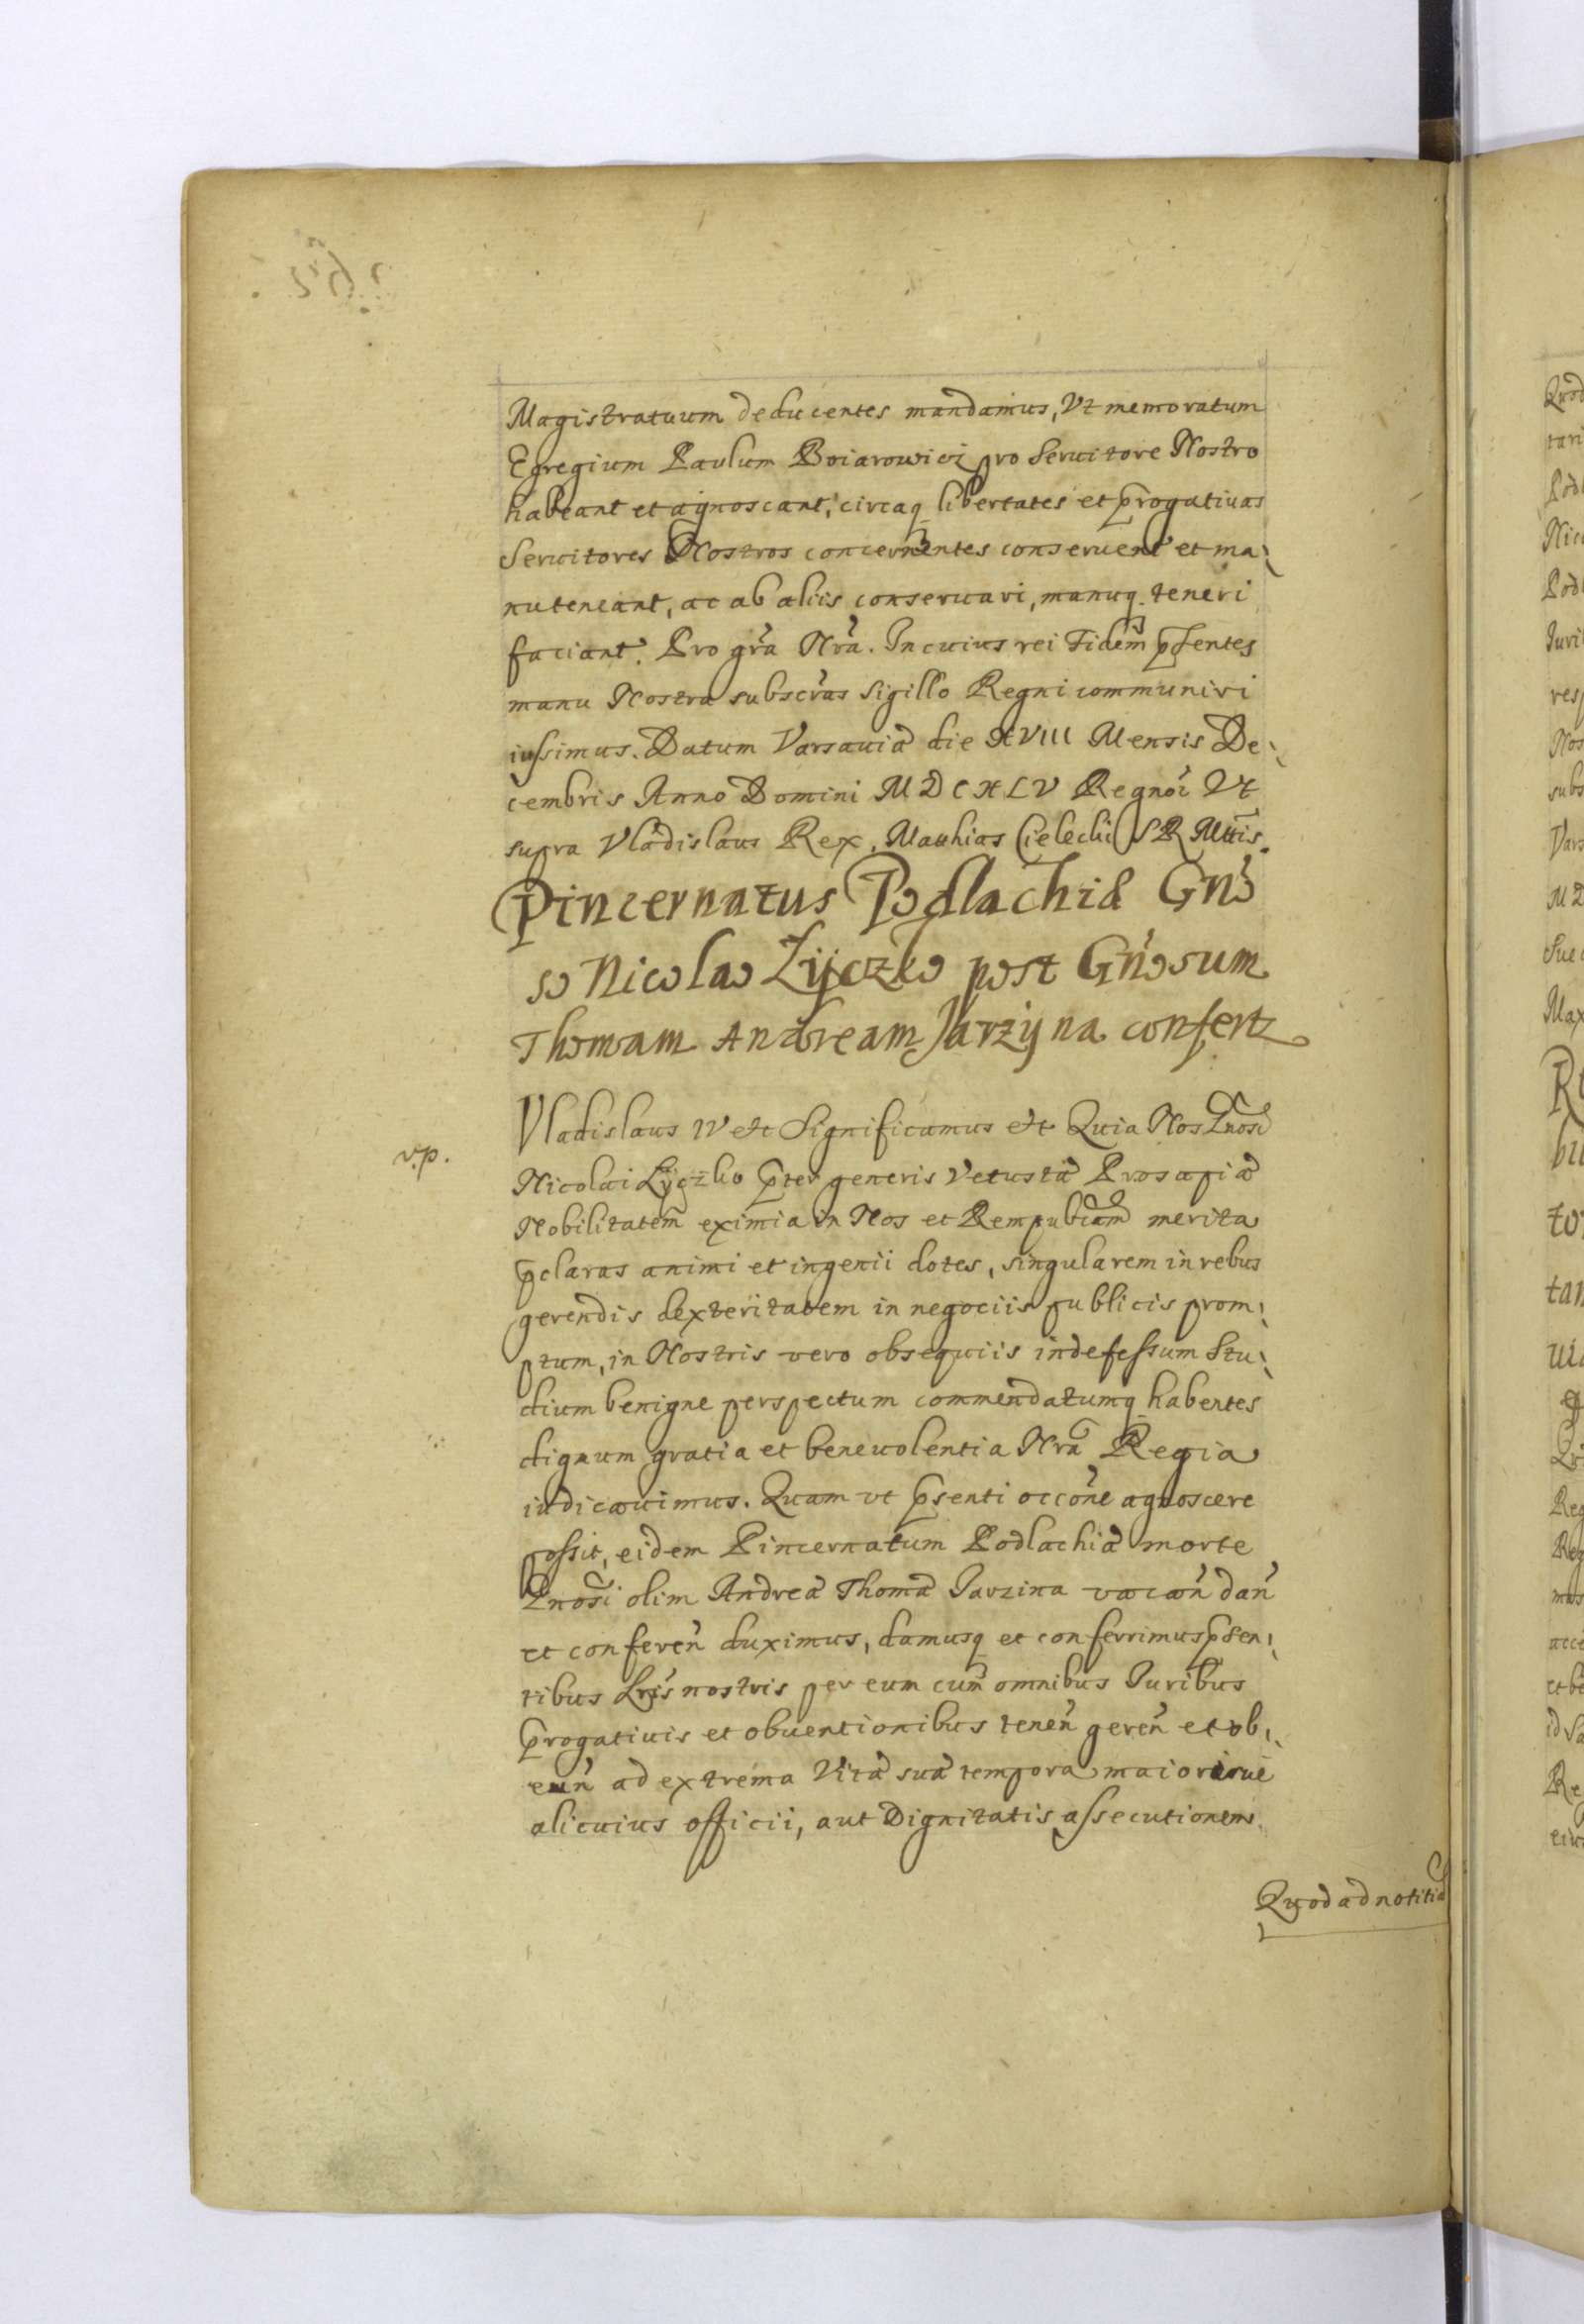 Magistratuum deducentes mandamus, Vt memoratum
Egregium Paulum Boiarowicz pro Seruitore Nostro
habeant et agnoscant, circaq libertates et progatiuas
Seruitores Nostros concernentes conseruent et ma
nuteneant, ac ab aliis conseruari, manuq. teneri
faciant. Pro gra Nra. In cuius rei Fidem psentes
manu Nostra subscras Sigillo Regni communiri
iussimus. Datum Varsauiæ die XVIII Mensis De
cembris Anno Domini MDCXLV Regnor Vt
supra Vladislaus Rex, Matthias Cielecki S R Mttis.
Pincernatus Podlachiæ Gno
so Nicolao Zyczko post Gnosum
Thomam Andream Jarzyna confert
Vladislaus IV etc Significamus etc Quia Nos Gnosi
v.p.
Nicolai Zyczko pter generis Vetustæ Prosapiæ
Nobilitatem eximia in Nos et Rempublicam merita
pclaras animi et ingenii dotes, singularem in rebus
gerendis dexteritatem in negociis publicis prom
ptum, in Nostris vero obsequiis indefessum Stu
dium benigne perspectum commendatumq habentes
dignum gratia et beneuolentia Nra Regia
iudicauimus. Quam vt psenti occone agnoscere
possit, eidem Pincernatum Podlachiæ morte
Gnosi olim Andreæ Thomæ Jarzina vacan dan
et conferen duximus, damusq et conferrimus psen
tibus Lris nostris per eum cum omnibus Iuribus
progatiuis et obuentionibus tenen geren et ob
eun ad extrema Vitæ suæ tempora maiorisue
alicuius officii, aut Dignitatis assecutionem
Quod ad notitiã